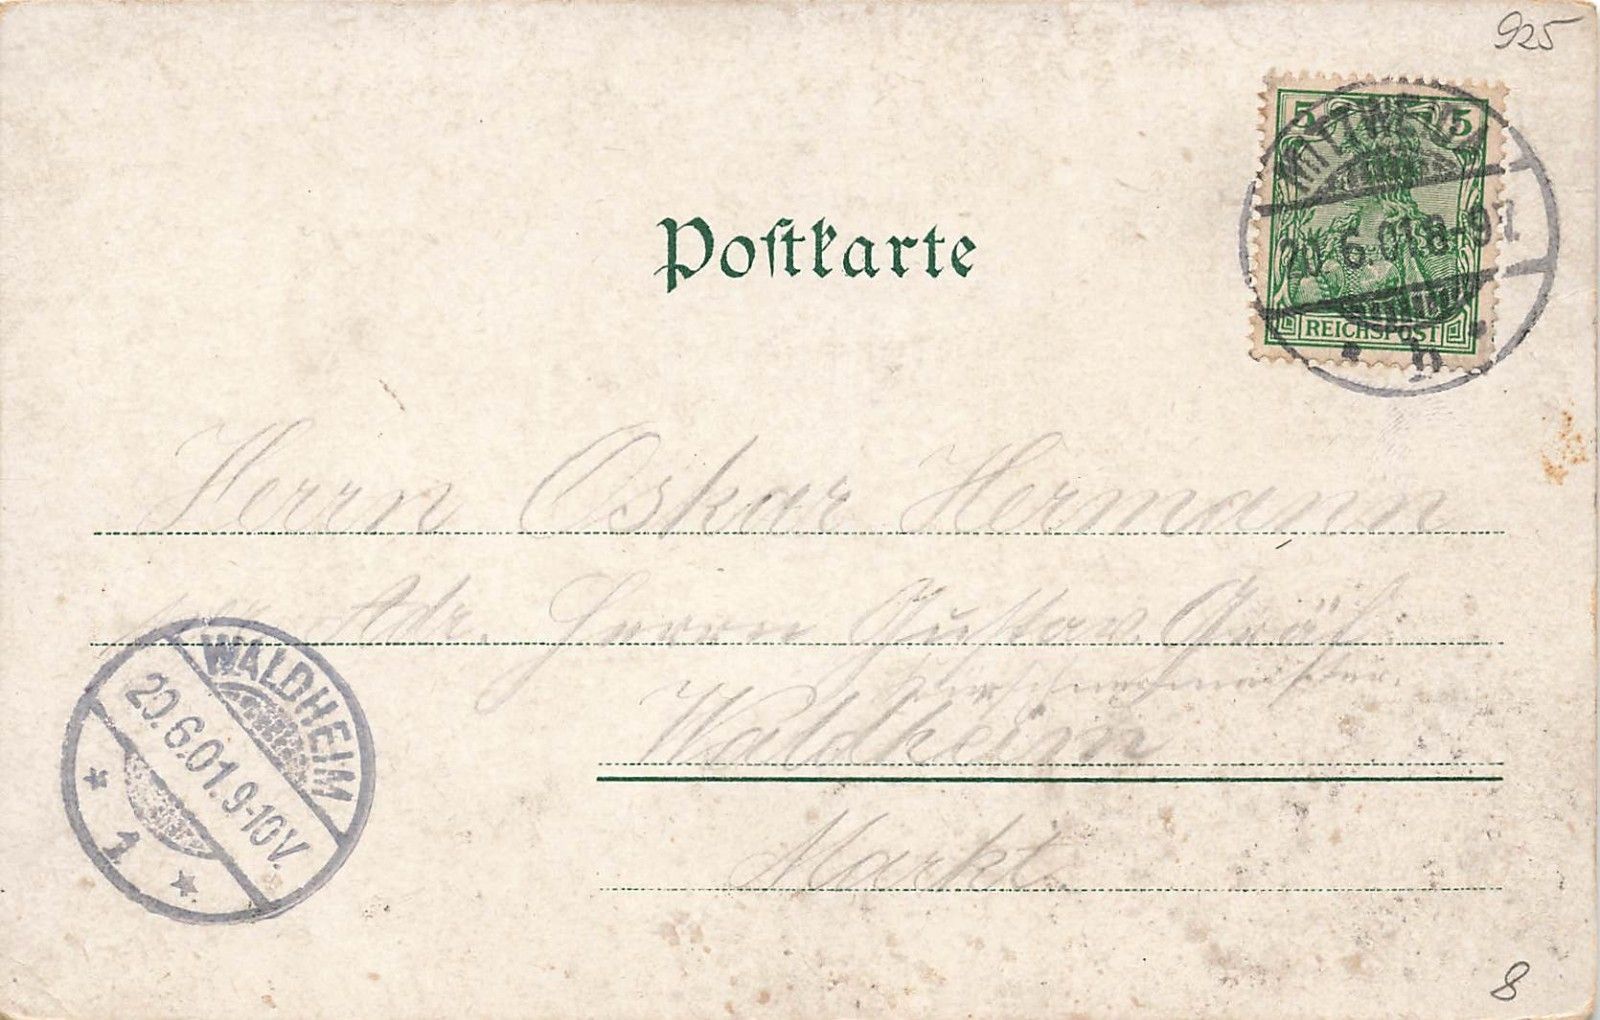 925
5 5
MITTWEIDA
20.6.01.8-9V.
REICHSPOST
h
Postkarte
Herrn Oskar Hermann
Adr. Herrn Gustav Gräf.
Waldheim
Markt.
WALDHEIM
20.6.01.9-10V.
* 1 *
8